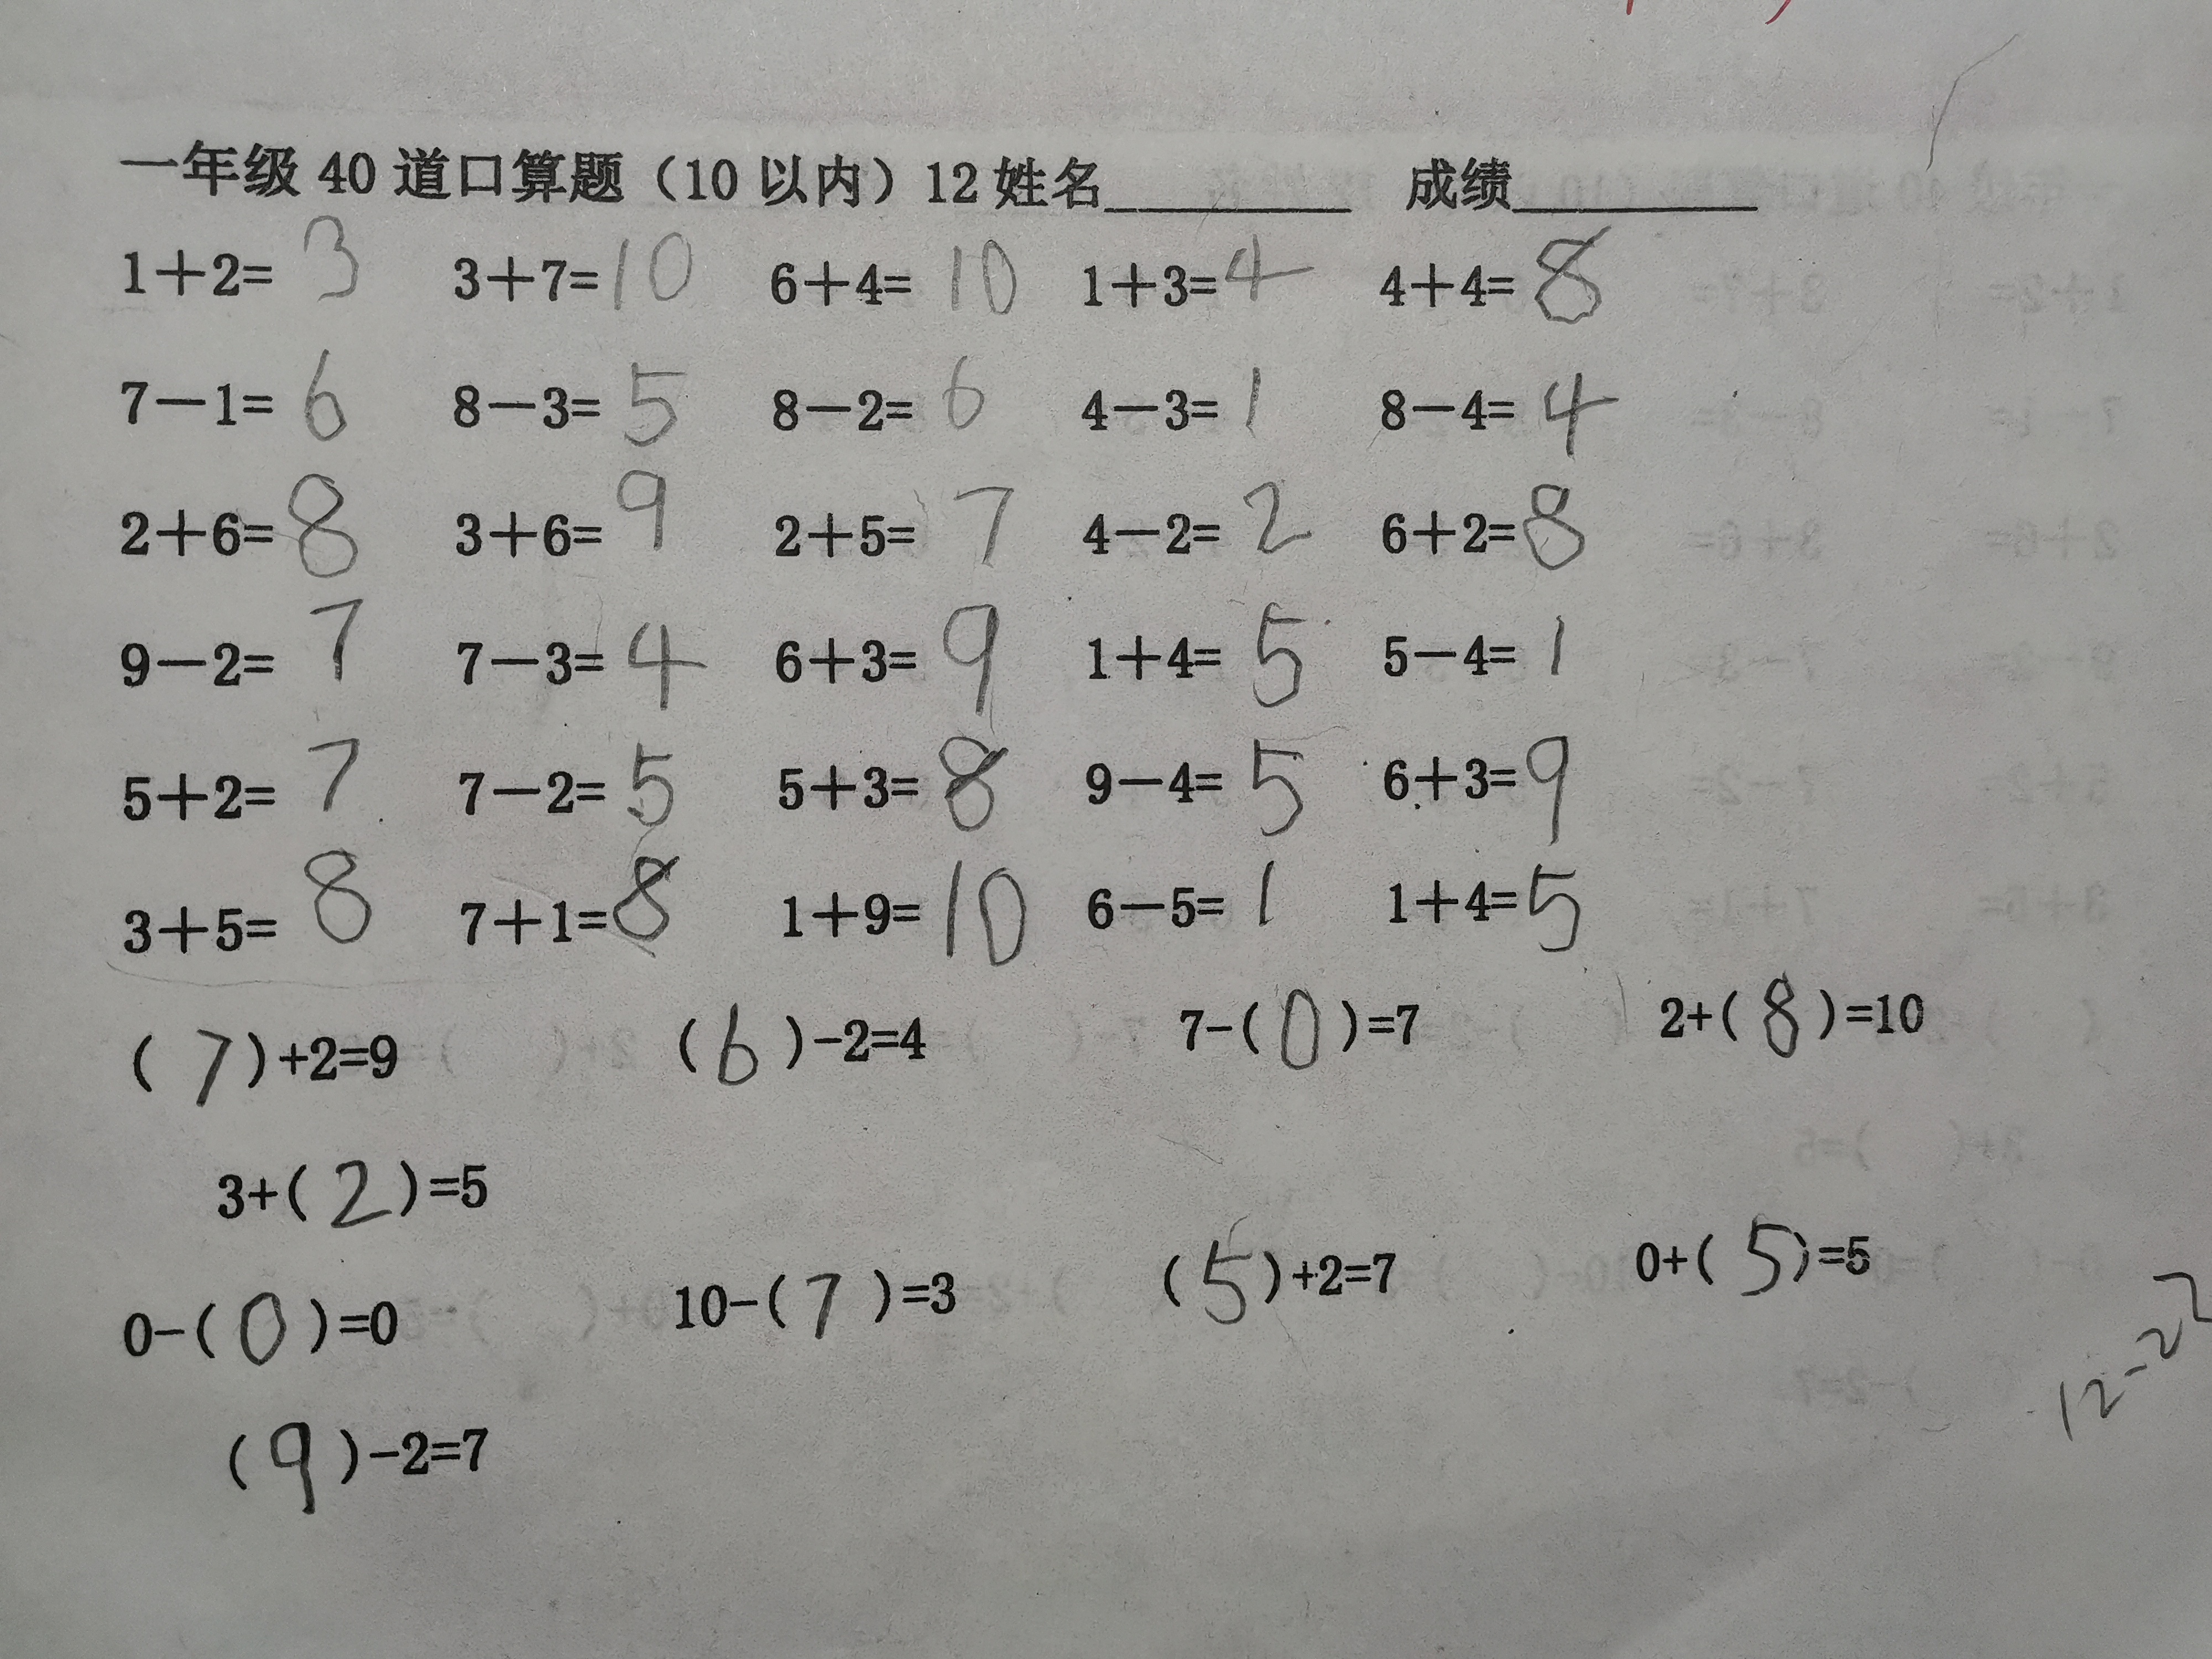 一年级 40 道口算题（10 以内）12 姓名_________ 成绩_________
1＋2= 3 3＋7=10 6＋4= 10 1＋3=4 4＋4= 8
7－1= 6 8－3= 5 8－2= 6 4－3= 1 8－4= 4
2＋6= 8 3＋6= 9 2＋5= 7 4－2= 2 6＋2=8
9－2= 7 7－3= 4 6＋3= 9 1＋4= 5 5－4= 1
5＋2= 7 7－2= 5 5＋3= 8 9－4= 5 6＋3=9
3＋5= 8 7＋1=8 1＋9= 10 6－5= 1 1＋4=5
( 7 )+2=9 ( 6 )-2=4 7-( 0 )=7 2+( 8 )=10
3+( 2 )=5
0-( 0 )=0 10-( 7 )=3 ( 5 )+2=7 0+( 5 )=5
12-22
( 9 )-2=7